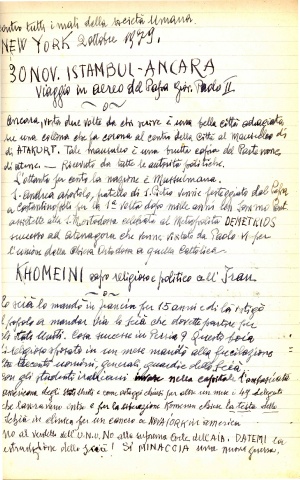 contro tutti i mali della società Umana.
NEW YORK 2 ottobre 1979.
30 NOV. ISTAMBUL-ANCARA
Viaggio in aereo del Papa Giov. Paolo II
Ancara, vista due volte da chi scrive è una bella città adagiata
su una colona che fa corona al centro della città al Mausoleo di
di ATATURT. Tale mausoleo è una brutta copia del Partenone
di atene. — Ricevuto da tutte le autorità politiche.
L'ottanta per cento la nazione è Mussulmana.
S. Andrea apostolo, fratello di S. Pietro venne festeggiato dal Papa
a Costantinopoli per la 1ª volta dopo mille anni con
assistette alla S. Ortodossa celebrata al Metropolita DEMETRIOS
successo ad Atenagora che venne visitato da Paolo VI per
l'unione della chiesa Ortodossa a quella Cattolica.
KHOMEINI capo religioso e politico dell'Iran
Lo scià lo mandò in francia per 15 anni e di là istigò
il popolo a mandar via lo Scià che dovette partire per
gli Stati Uniti. Cosa successe in Persia? Questo
religioso spietato in un mese mandò alla fucilazione
trecento uomini, generali guardie dello Scià
con gli studenti iraniani nella capitale l'ambasciata
americana degli Stati Uniti e con ostaggi chiusi per oltre un mese i 49 delegati
che lavoravano entro e per la liberazione Komeini chiese la testa dello
Scià in clinica per un cancro a NOVA IORK in america
No al verdetto dell'O.N.U. No alla suprema corte dell'AIA. DATEMI la
estradizione dello scià! Si MINACCIA una nuova guerra,